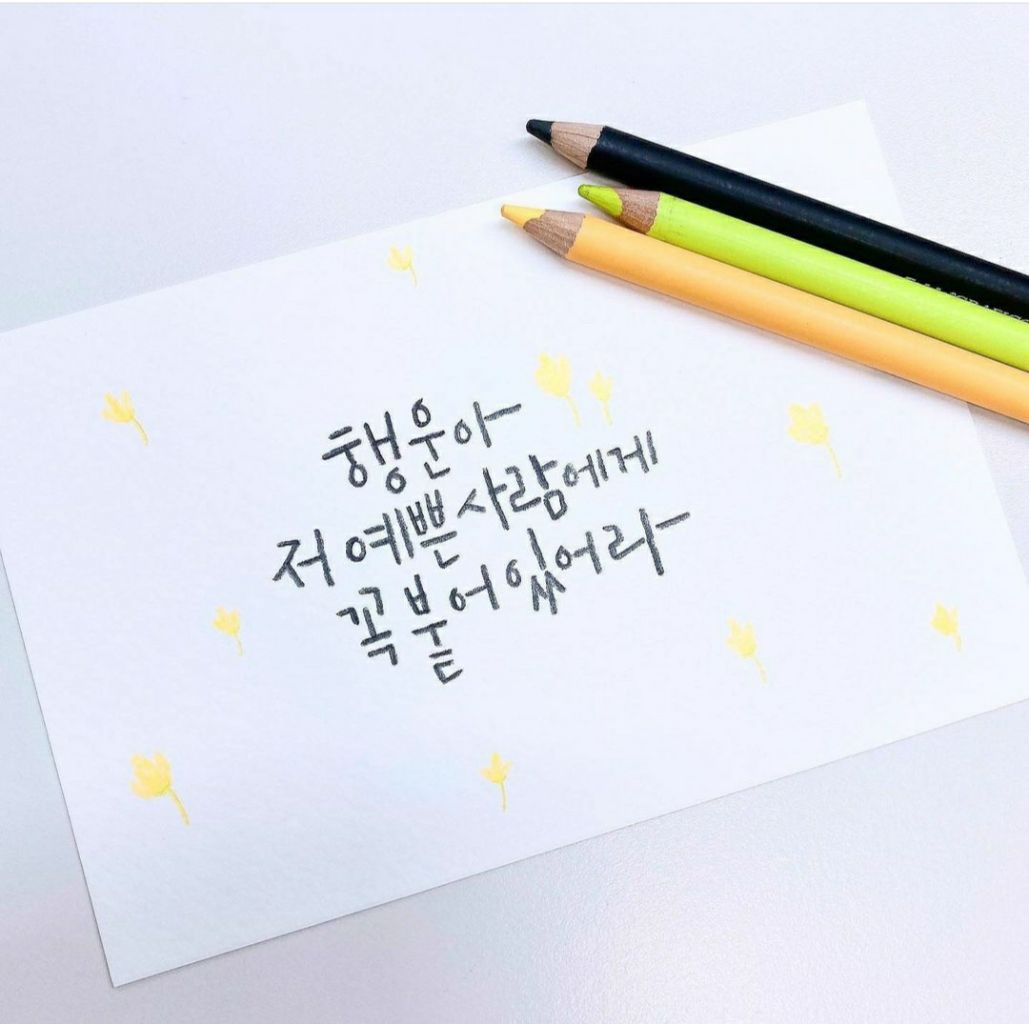 행운아
저 예쁜 사람에게
꼭 붙어있어라